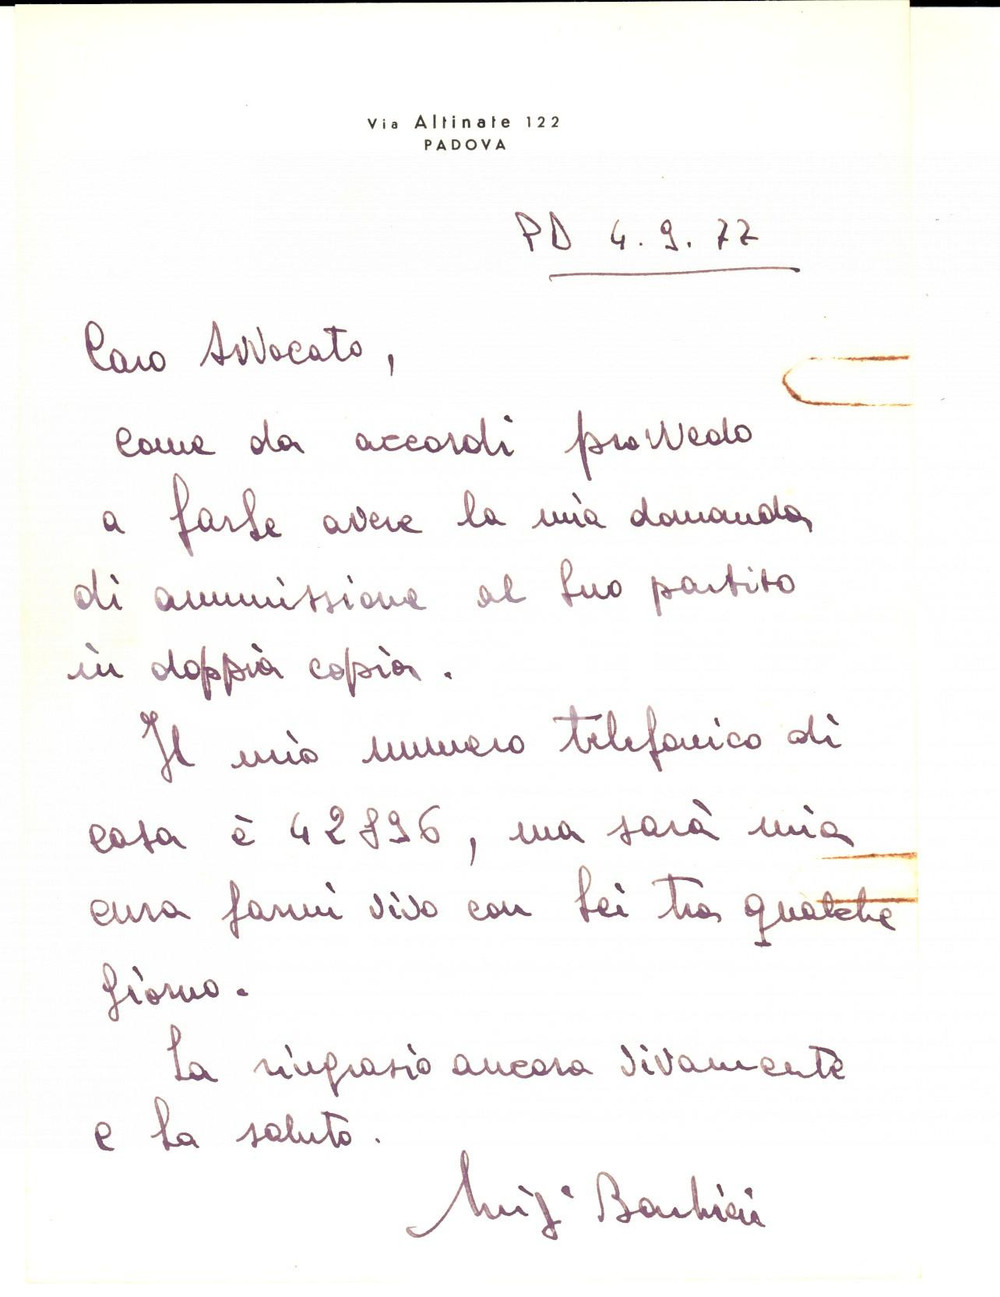 Via Altinate 122
PADOVA
PD 4.9.77
Caro Avvocato,
come da accordi provvedo
a farLe avere la mia domanda
di ammissione al Suo partito
in doppia copia.
Il mio numero telefonico di
casa è 42896, ma sarà mia
cura farmi vivo con Lei tra qualche
giorno.
La ringrazio ancora vivamente
e La saluto.
Luigi